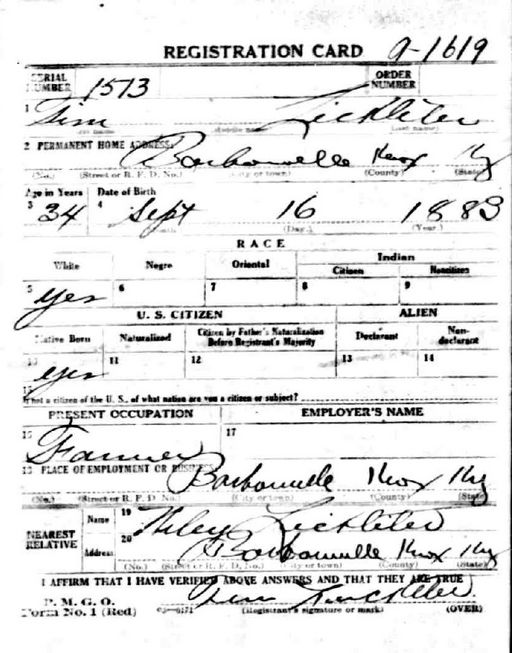 REGISTRATION CARD 9-1619
SERIAL NUMBER 1513 ORDER NUMBER
1 Tim Lickliter
(Middle name) (Last name)
2 PERMANENT HOME ADDRESS: Barbourville Knox Ky
(No.) (Street or R. F. D. No.) (City or town) (County) (State)
Age in Years Date of Birth
3 34 4 Sept 16 1883
(Month) (Day.) (Year.)
RACE
White Negro Oriental Indian
Citizen Noncitizen
5 yes 6 7 8 9
U. S. CITIZEN ALIEN
Native Born Naturalized Citizen by Father's Naturalization Before Registrant's Majority Declarant Non-declarant
10 yes 11 12 13 14
15
If not a citizen of the U. S., of what nation are you a citizen or subject?
PRESENT OCCUPATION EMPLOYER'S NAME
16 Farmer 17
18 PLACE OF EMPLOYMENT OR BUSINESS: Barbourville Knox Ky
(No.) (Street or R. F. D. No.) (City or town) (County) (State)
NEAREST RELATIVE Name 19 Wiley Lickliter
Address 20 Barbourville Knox Ky
(No.) (Street or R. F. D. No.) (City or town) (County) (State)
I AFFIRM THAT I HAVE VERIFIED ABOVE ANSWERS AND THAT THEY ARE TRUE
P. M. G. O.
Form No. 1 (Red) Tim Lickliter
(Registrant's signature or mark) (OVER)